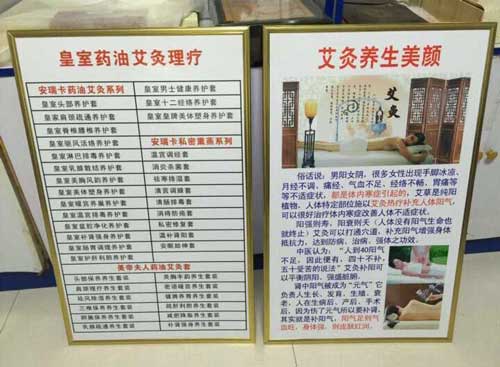 皇室药油艾灸理疗
安瑞卡药油艾灸系列
皇室头部养护套
皇家肩颈疏通养护套
皇室脊椎腰椎养护套
皇室驱风活络养护套
皇室淋巴排毒养护套
皇室乳腺散结养护套
皇室美胸风韵养护套
皇室美体塑身养护套
皇室暖宫养巢养护套
皇室温宫排毒养护套
皇室盆腔净化养护套
皇室补肾强身养护套
皇室肠胃调理养护套
皇室护肝利胆养护套
皇室男士健康养护套
皇室十二经络养护套
皇室皇牌美体塑身养护套
安瑞卡私密熏蒸系列
温宫调经套
消炎杀菌套
祛寒排湿套
清宫调糖套
清巢排毒套
消痔防痔套
私密修复套
温补肾阳套
美帝夫人药油艾灸套
头部保养养生套装
肩颈理疗养生套装
三椎保养养生套装
卵巢保养养生套装
乳腺疏通养生套装
美胸丰韵养生套装
肠胃调理养生套装
疏肝利胆养生套装
减肥降脂养生套装
补肾强身养生套装
艾灸养生美颜
艾灸
俗话说：男阳女阴，很多女性出现手脚冰凉，
月经不调，痛经、气血不足、经络不畅，胃痛等
等不适症状，都是体内寒症引起的，艾草是纯阳
植物，人体特定部位施以艾灸热疗补充人体阳气，
可以很好治疗体内寒症改善人体不适症状。
阳强则寿，阳衰则夭（人体没有阳气生命也
就终止）艾灸可以打通六道、补充阳气增强身体
抵抗力，达到防病、治病、强体之功效。
中医认为：“人到40阳气
不足，因此便有，四十不补，
五十受苦的说法”艾灸补阳可
以平衡阴阳、强盛脏腑。
肾中阳气被成为“元气”它
负责人生长、发育、生殖、衰
老，人在生病后、产后、手术
后，因为伤了元气所以要补肾，
其实就是补阳气。阳气足则气
血旺，身体强，则皮肤红润。